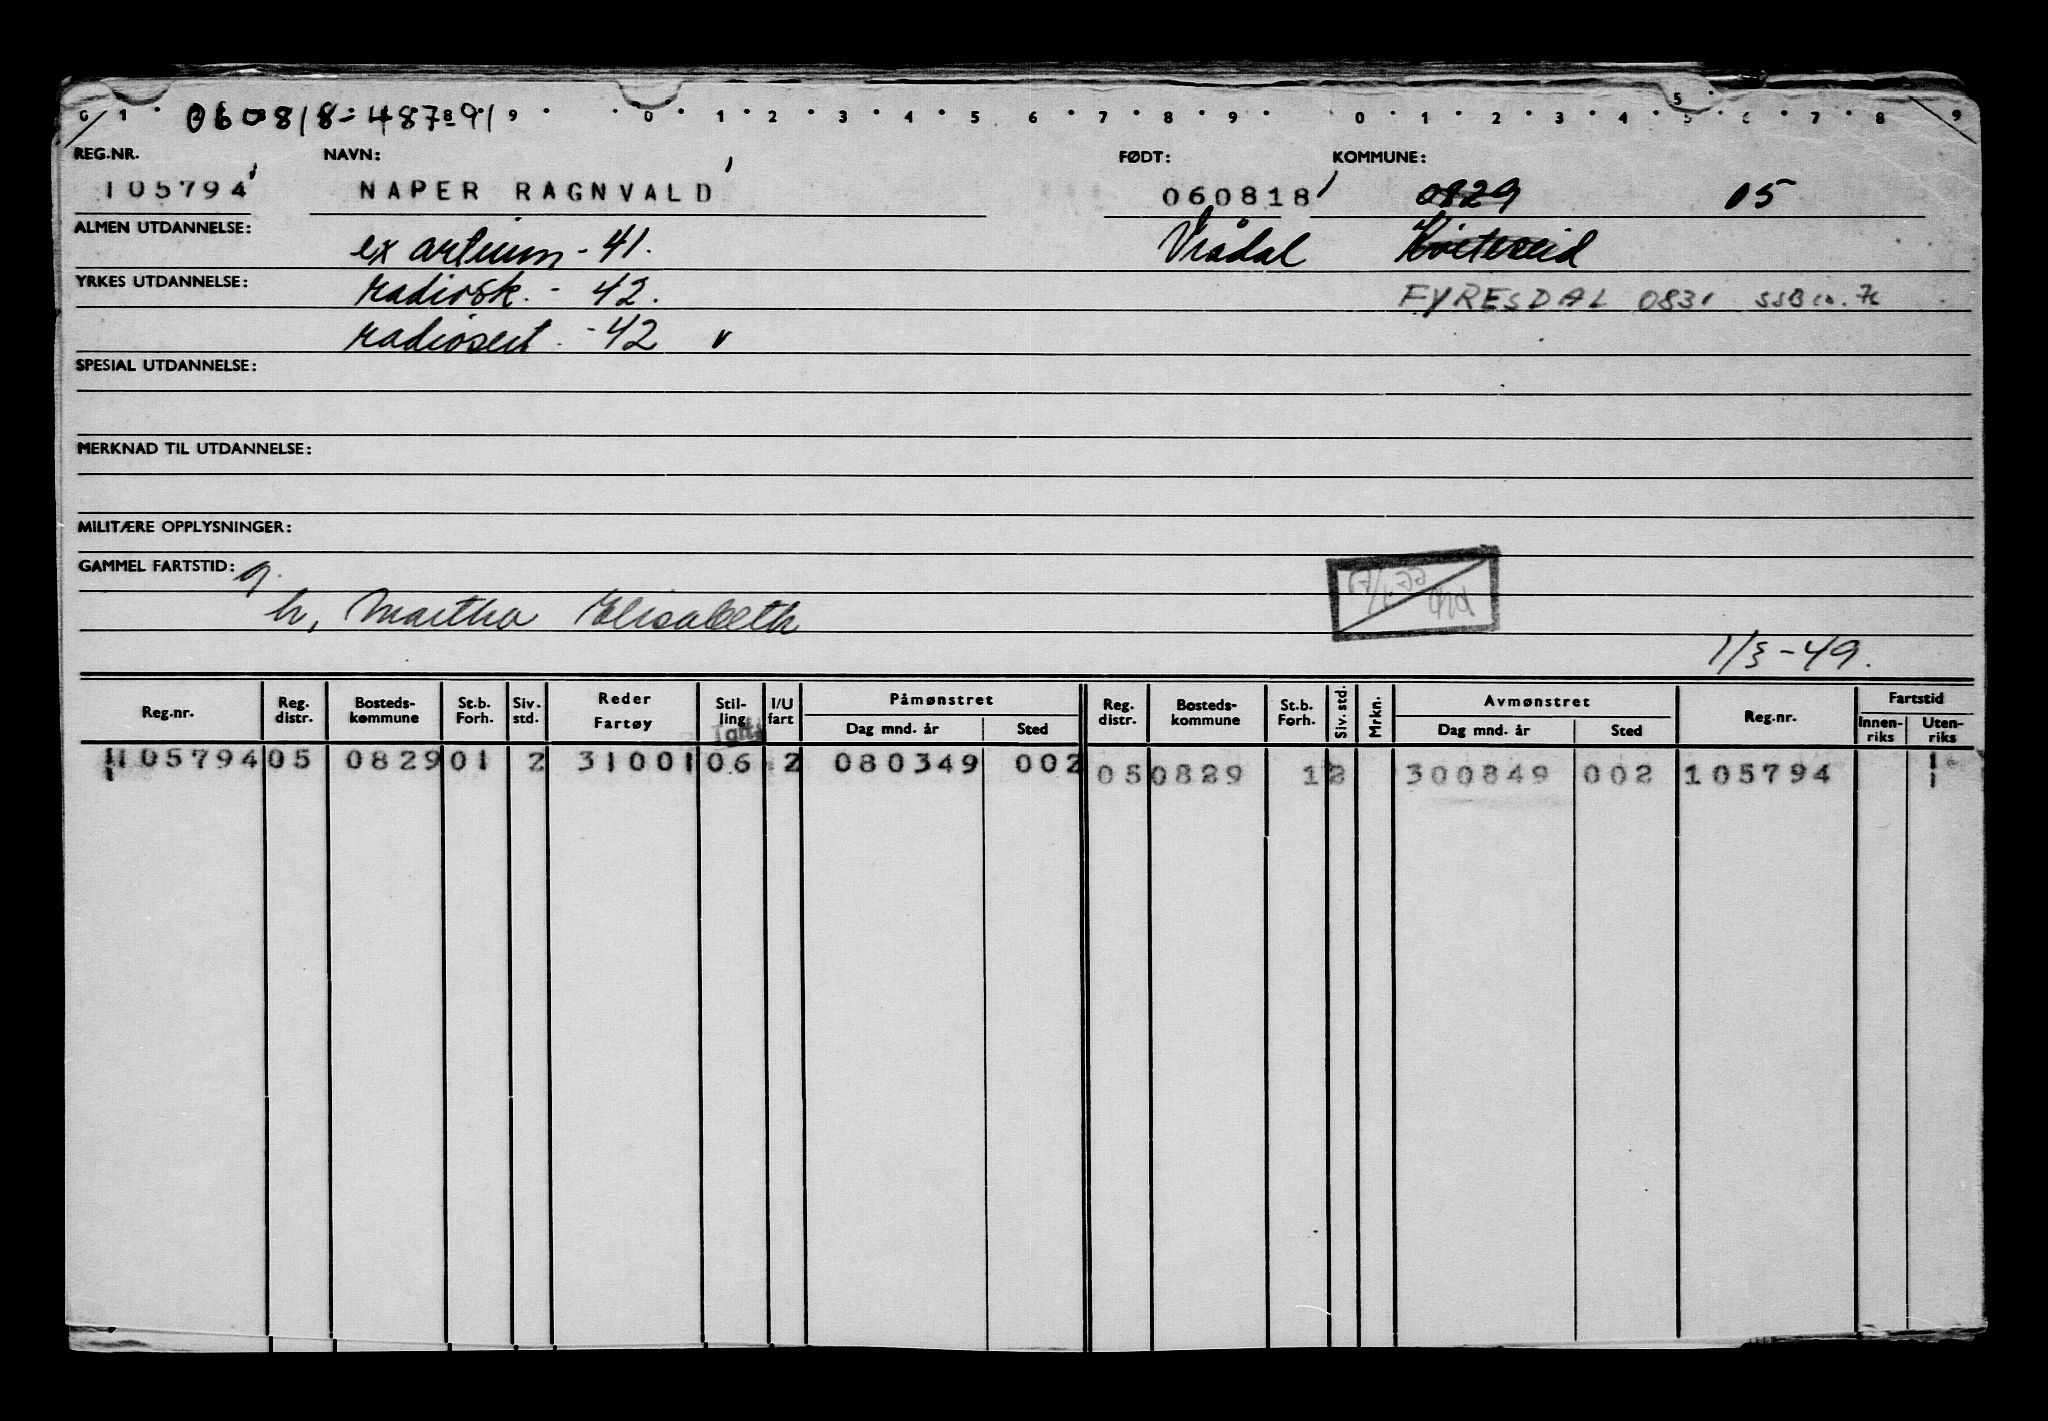 060818-48791
0 1 9 0 1 2 3 4 5 6 7 8 9 0 1 2 3 4 5 6 7 8 9
REG.NR. NAVN: FØDT: KOMMUNE:
105794 NAPER RAGNVALD 060818 0829 05
ALMEN UTDANNELSE: ex artium - 41. Vrådal Kviteseid
YRKES UTDANNELSE: radiosk. - 42. FYRESDAL 0831
radiosert. - 42
SPESIAL UTDANNELSE:
MERKNAD TIL UTDANNELSE:
MILITÆRE OPPLYSNINGER:
GAMMEL FARTSTID: g.
h, Martha Elisabeth
1/3-49.
Reg.nr. Reg. distr. Bosteds-kommune St.b. Forh. Siv. std. Reder Fartøy Stil-ling I/U fart Påmønstret Dag mnd. år Sted Reg. distr. Bosteds-kommune St.b. Forh. Siv. std. Mrkn. Avmønstret Dag mnd. år Sted Reg.nr. Fartstid Innen-riks Uten-riks
105794 05 0829 01 2 31001 06 2 080349 002 05 0829 1 2 300849 002 105794